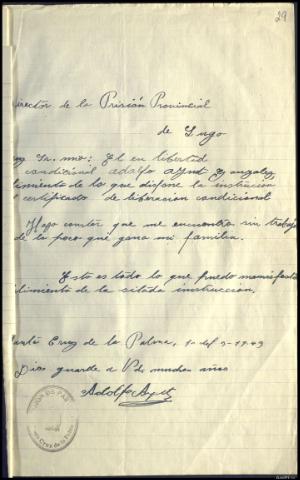 29
irector de la Prisión Provincial
de Lugo
Sr. mio: El en libertad
condicional Adolfo Gonzalez
limiento de lo que dispone la instrucción
certificado de liberación condicional
Hago constar que me encuentro sin trabajo
de lo poco que gana mi familia.
Esto es todo lo que puedo manifesta
dlimiento de la citada instrucción.
anta Cruz de la Palma, 1º del 9-1943
Dios guarde a Vd muchos años
Adolfo